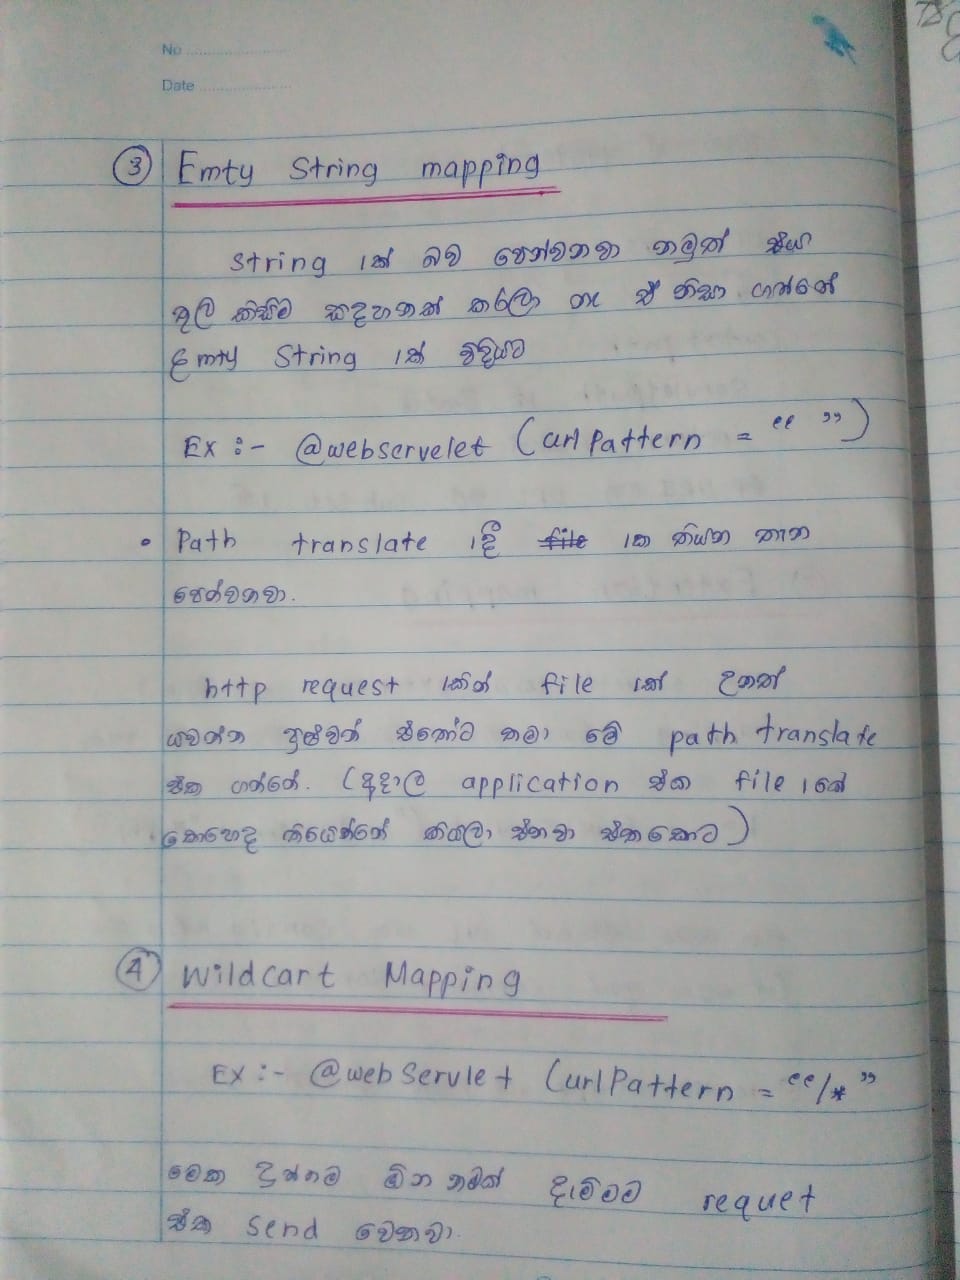 No ........................
Date ......................
③ Emty String mapping
String 1ක් බව පෙන්වනවා නමුත් එය
තුල කිසිම සදහනක් කරලා නෑ ඒ නිසා ගන්නේ
Emty String 1ක් විදියට
Ex :- @webservelet (urlPattern = “ ”)
• Path translate 1දී file 1ක තියන තැන
පෙන්වනවා.
http request 1කින් file 1ක් උනත්
යවන්න පුළුවන් එකෝට තමා මේ path translate
එක ගන්නේ. (අදාල application එක file 1කේ
කොහෙද තියෙන්නේ කියලා එනවා එතකොට)
④ Wildcart Mapping
Ex :- @webServlet (urlPattern = “/*”
මෙක දුන්නම ඕන නමක් දැම්මම requet
එක send වෙනවා.